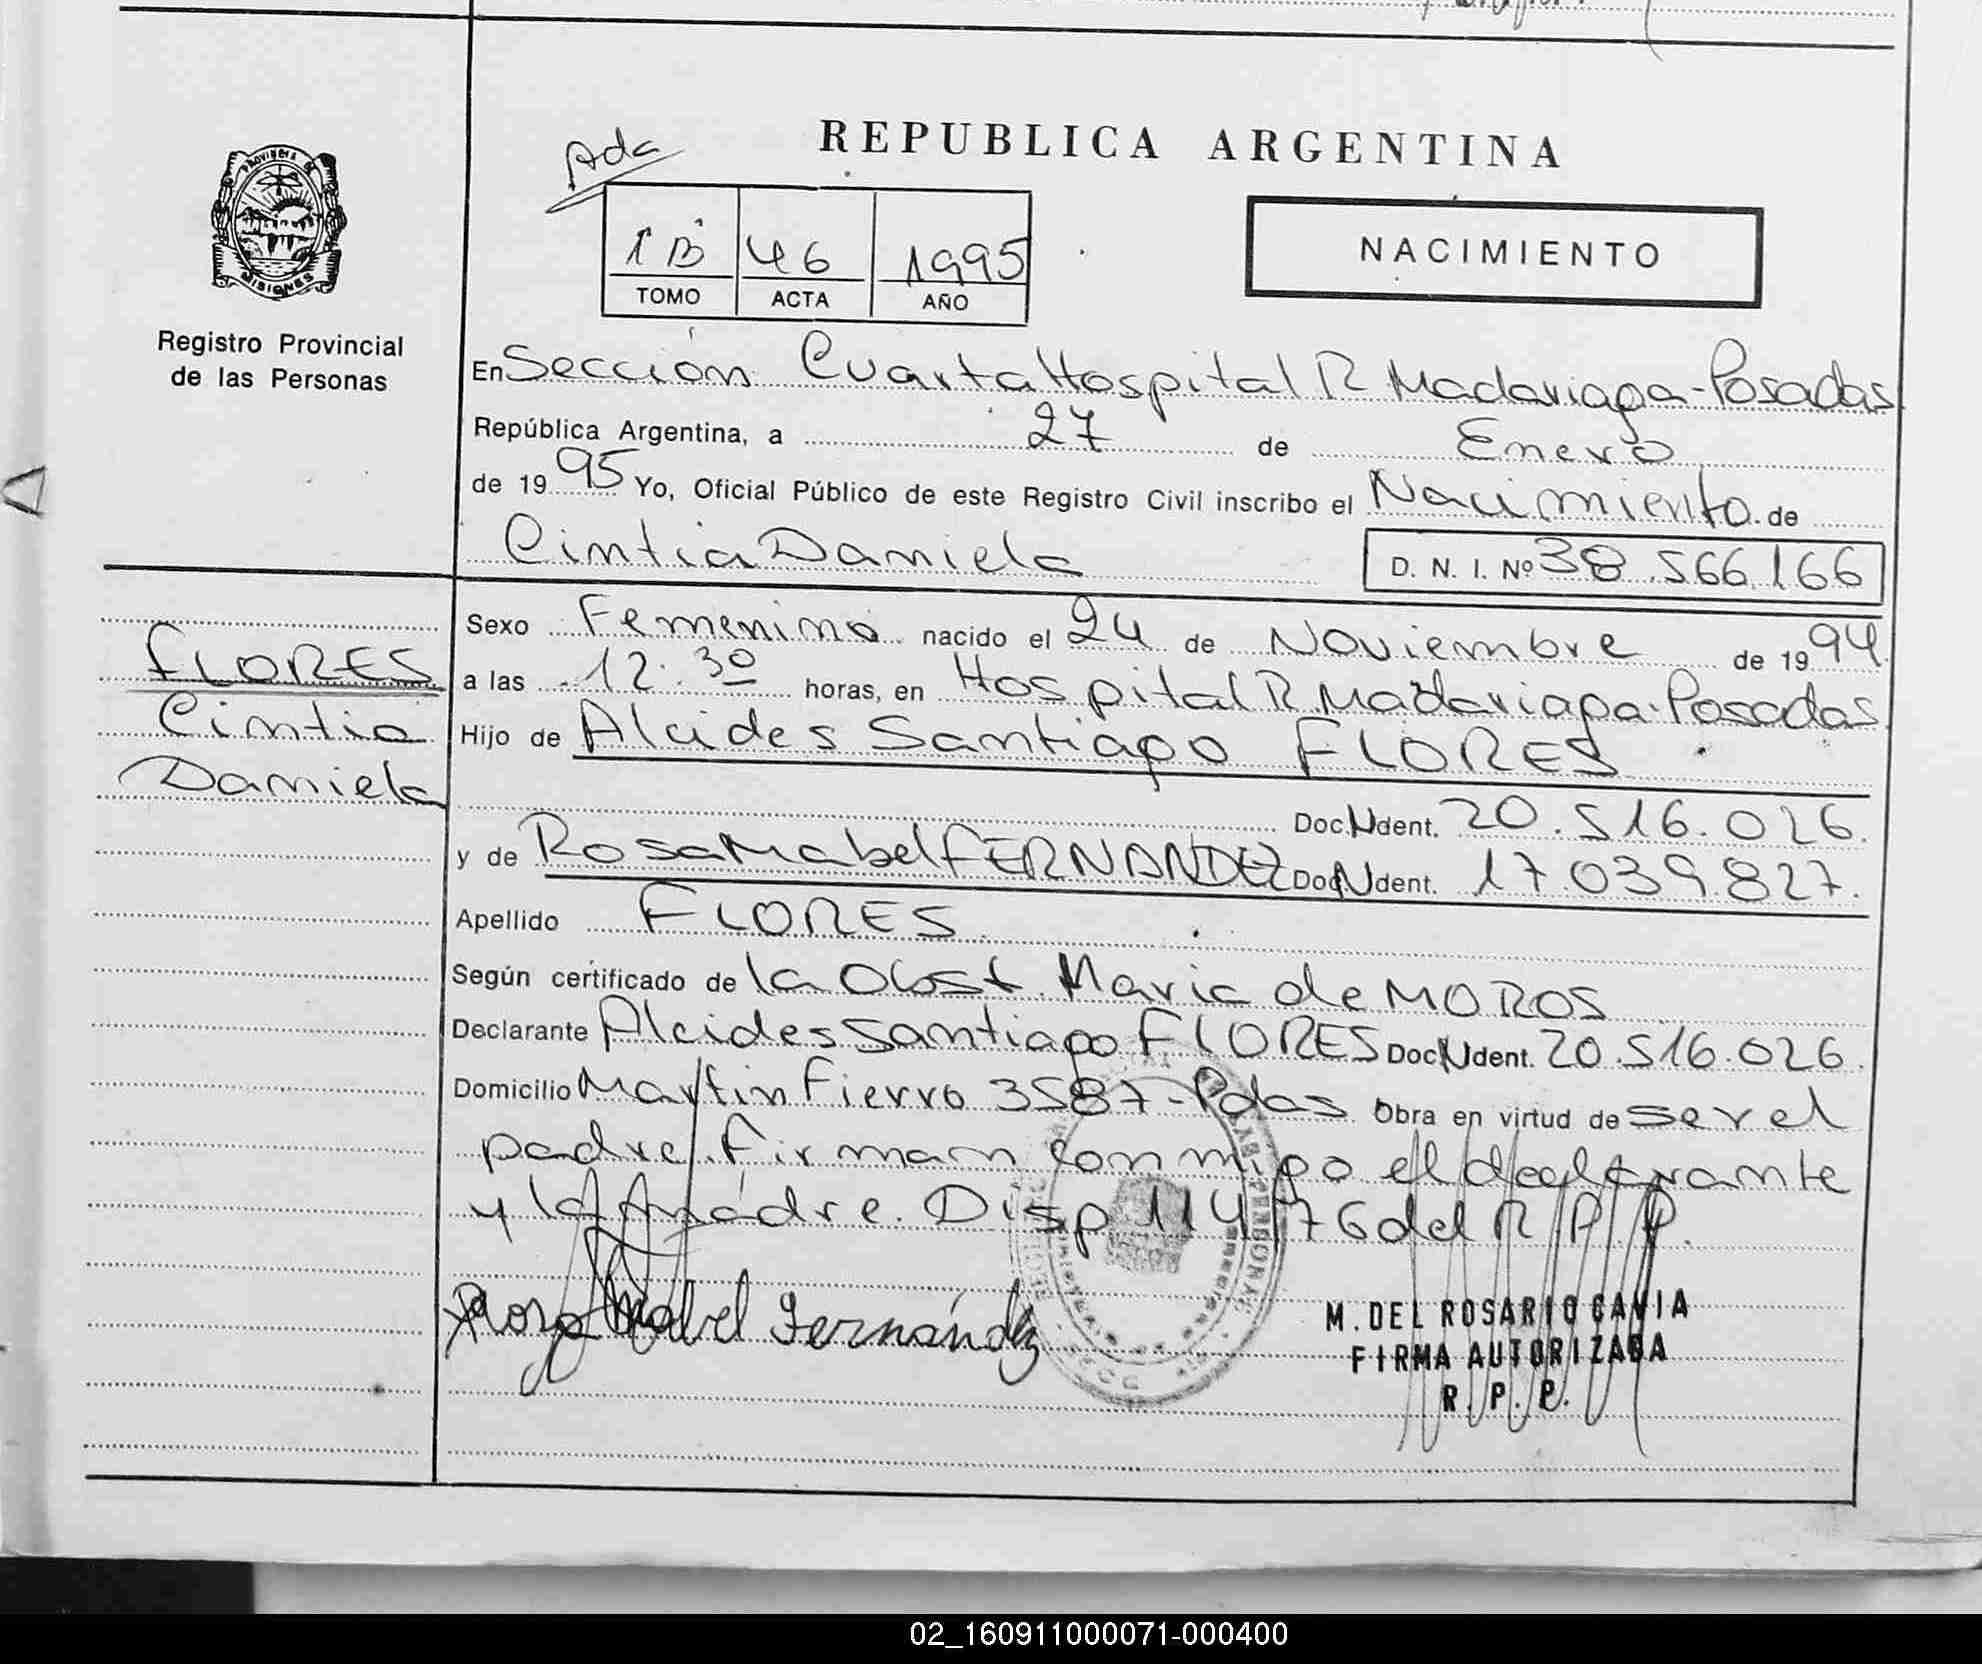 REPUBLICA ARGENTINA
Ada
1B 46 1995
TOMO ACTA AÑO
NACIMIENTO
PROVINCIA DE
MISIONES
Registro Provincial
de las Personas
En Sección Cuarta Hospital R Madariaga-Posadas
República Argentina, a 27 de Enero
de 1995 Yo, Oficial Público de este Registro Civil inscribo el Nacimiento de
Cintia Daniela D. N. I. Nº 38.566.166
FLORES
Cintia
Daniela
Sexo Femenino nacido el 24 de Noviembre de 1994
a las 12.30 horas, en Hospital R Madariaga-Posadas
Hijo de Alcides Santiago FLORES
Doc. N Ident. 20.516.026.
y de Rosa Mabel FERNANDEZ Doc N Ident. 17.039.827.
Apellido FLORES
Según certificado de la Obst. Maria de MOROS
Declarante Alcides Santiago FLORES Doc N Ident. 20.516.026.
Domicilio Martin Fierro 3587-Pdas Obra en virtud de ser el
padre. Firman conmigo el declarante
y la madre. Disp 114/76 del R.P.P.
Rosa Mabel Fernández
M. DEL ROSARIO GAVIA
FIRMA AUTORIZADA
R. P. P.
02_160911000071-000400